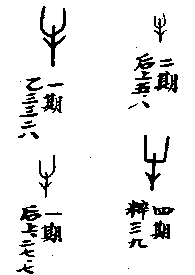 一期
乙三三二八
二期
后上五·八
一期
后上·二七·七
四期
粹三九